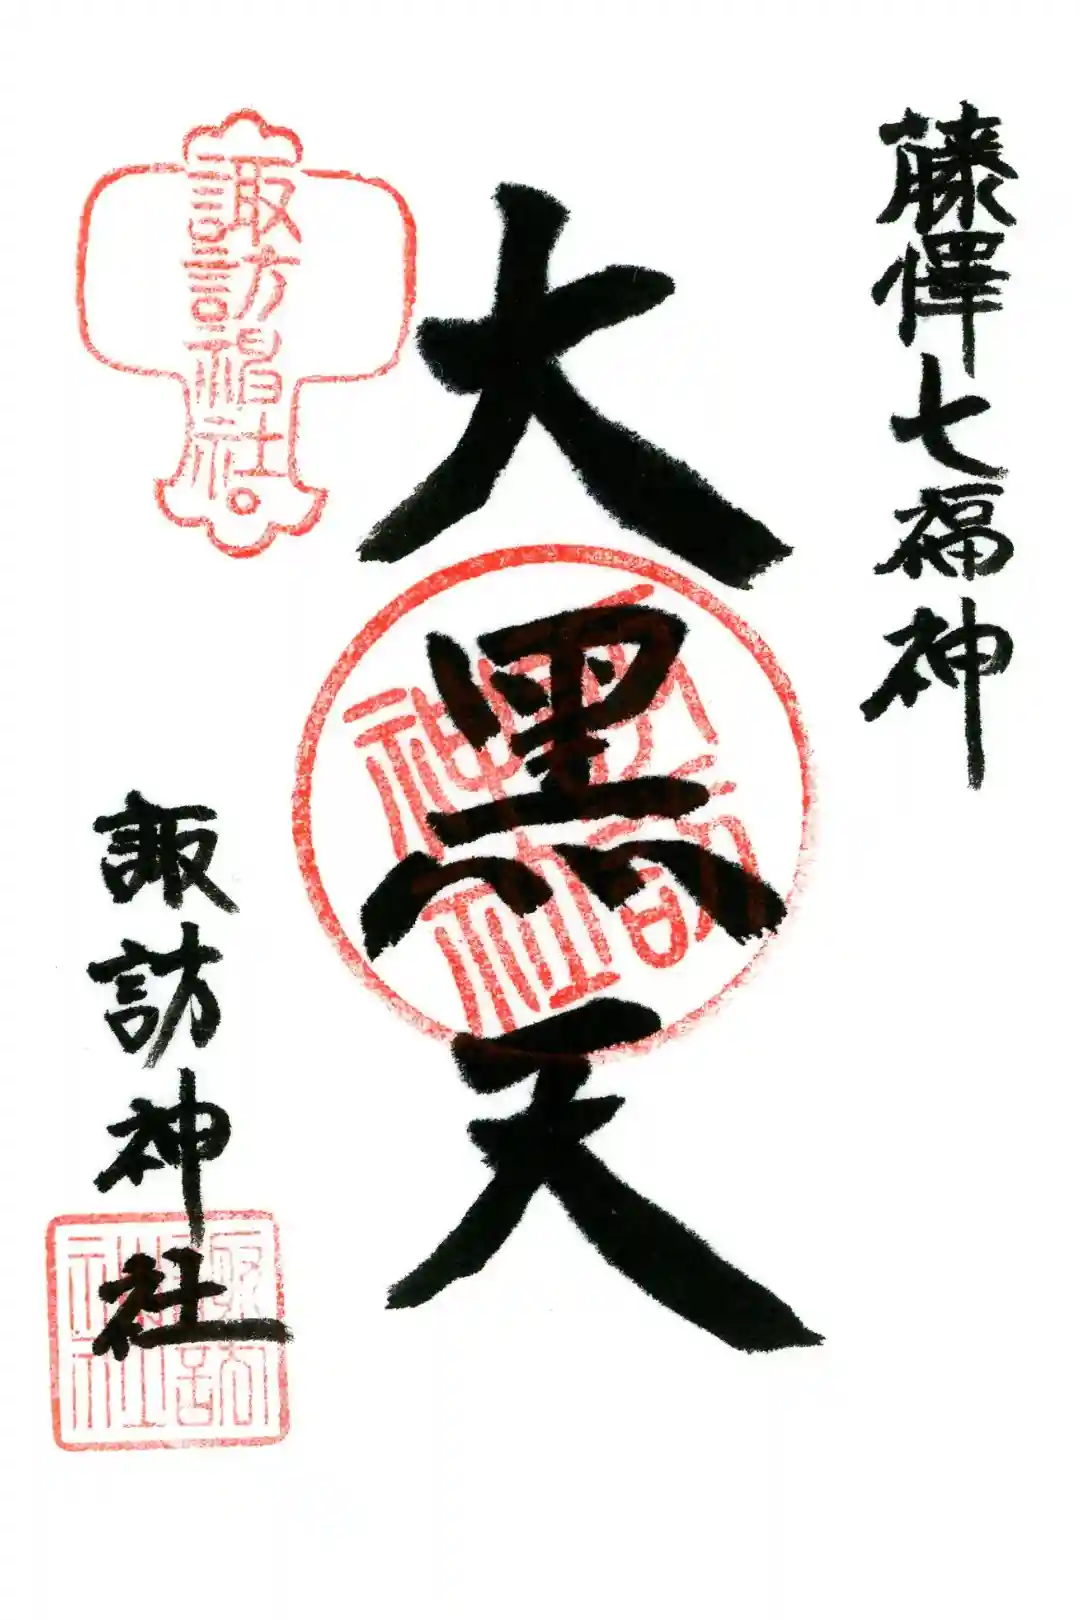 藤澤七福神
大黒天
諏訪神社
諏訪神社
諏訪神社
諏訪神社